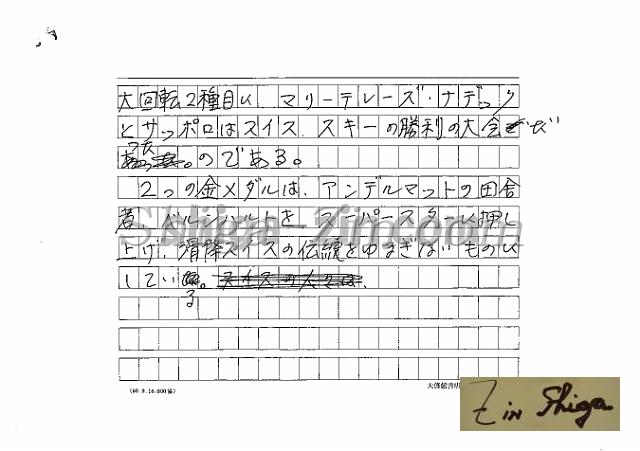 大回転2種目に、マリーテレーズ・ナデック
とサッポロはスイス、スキーの勝利の大会だ
った。のである。
2つの金メダルは、アンデルマットの田舎
者、ベルンハルトを、スーパースターに押し
上げ、滑降スイスの伝統をゆるぎないものに
している。スイスの人々は、
(46.9.10.000協)
大啓館書
Shiga-Zin.com
Z in Shiga